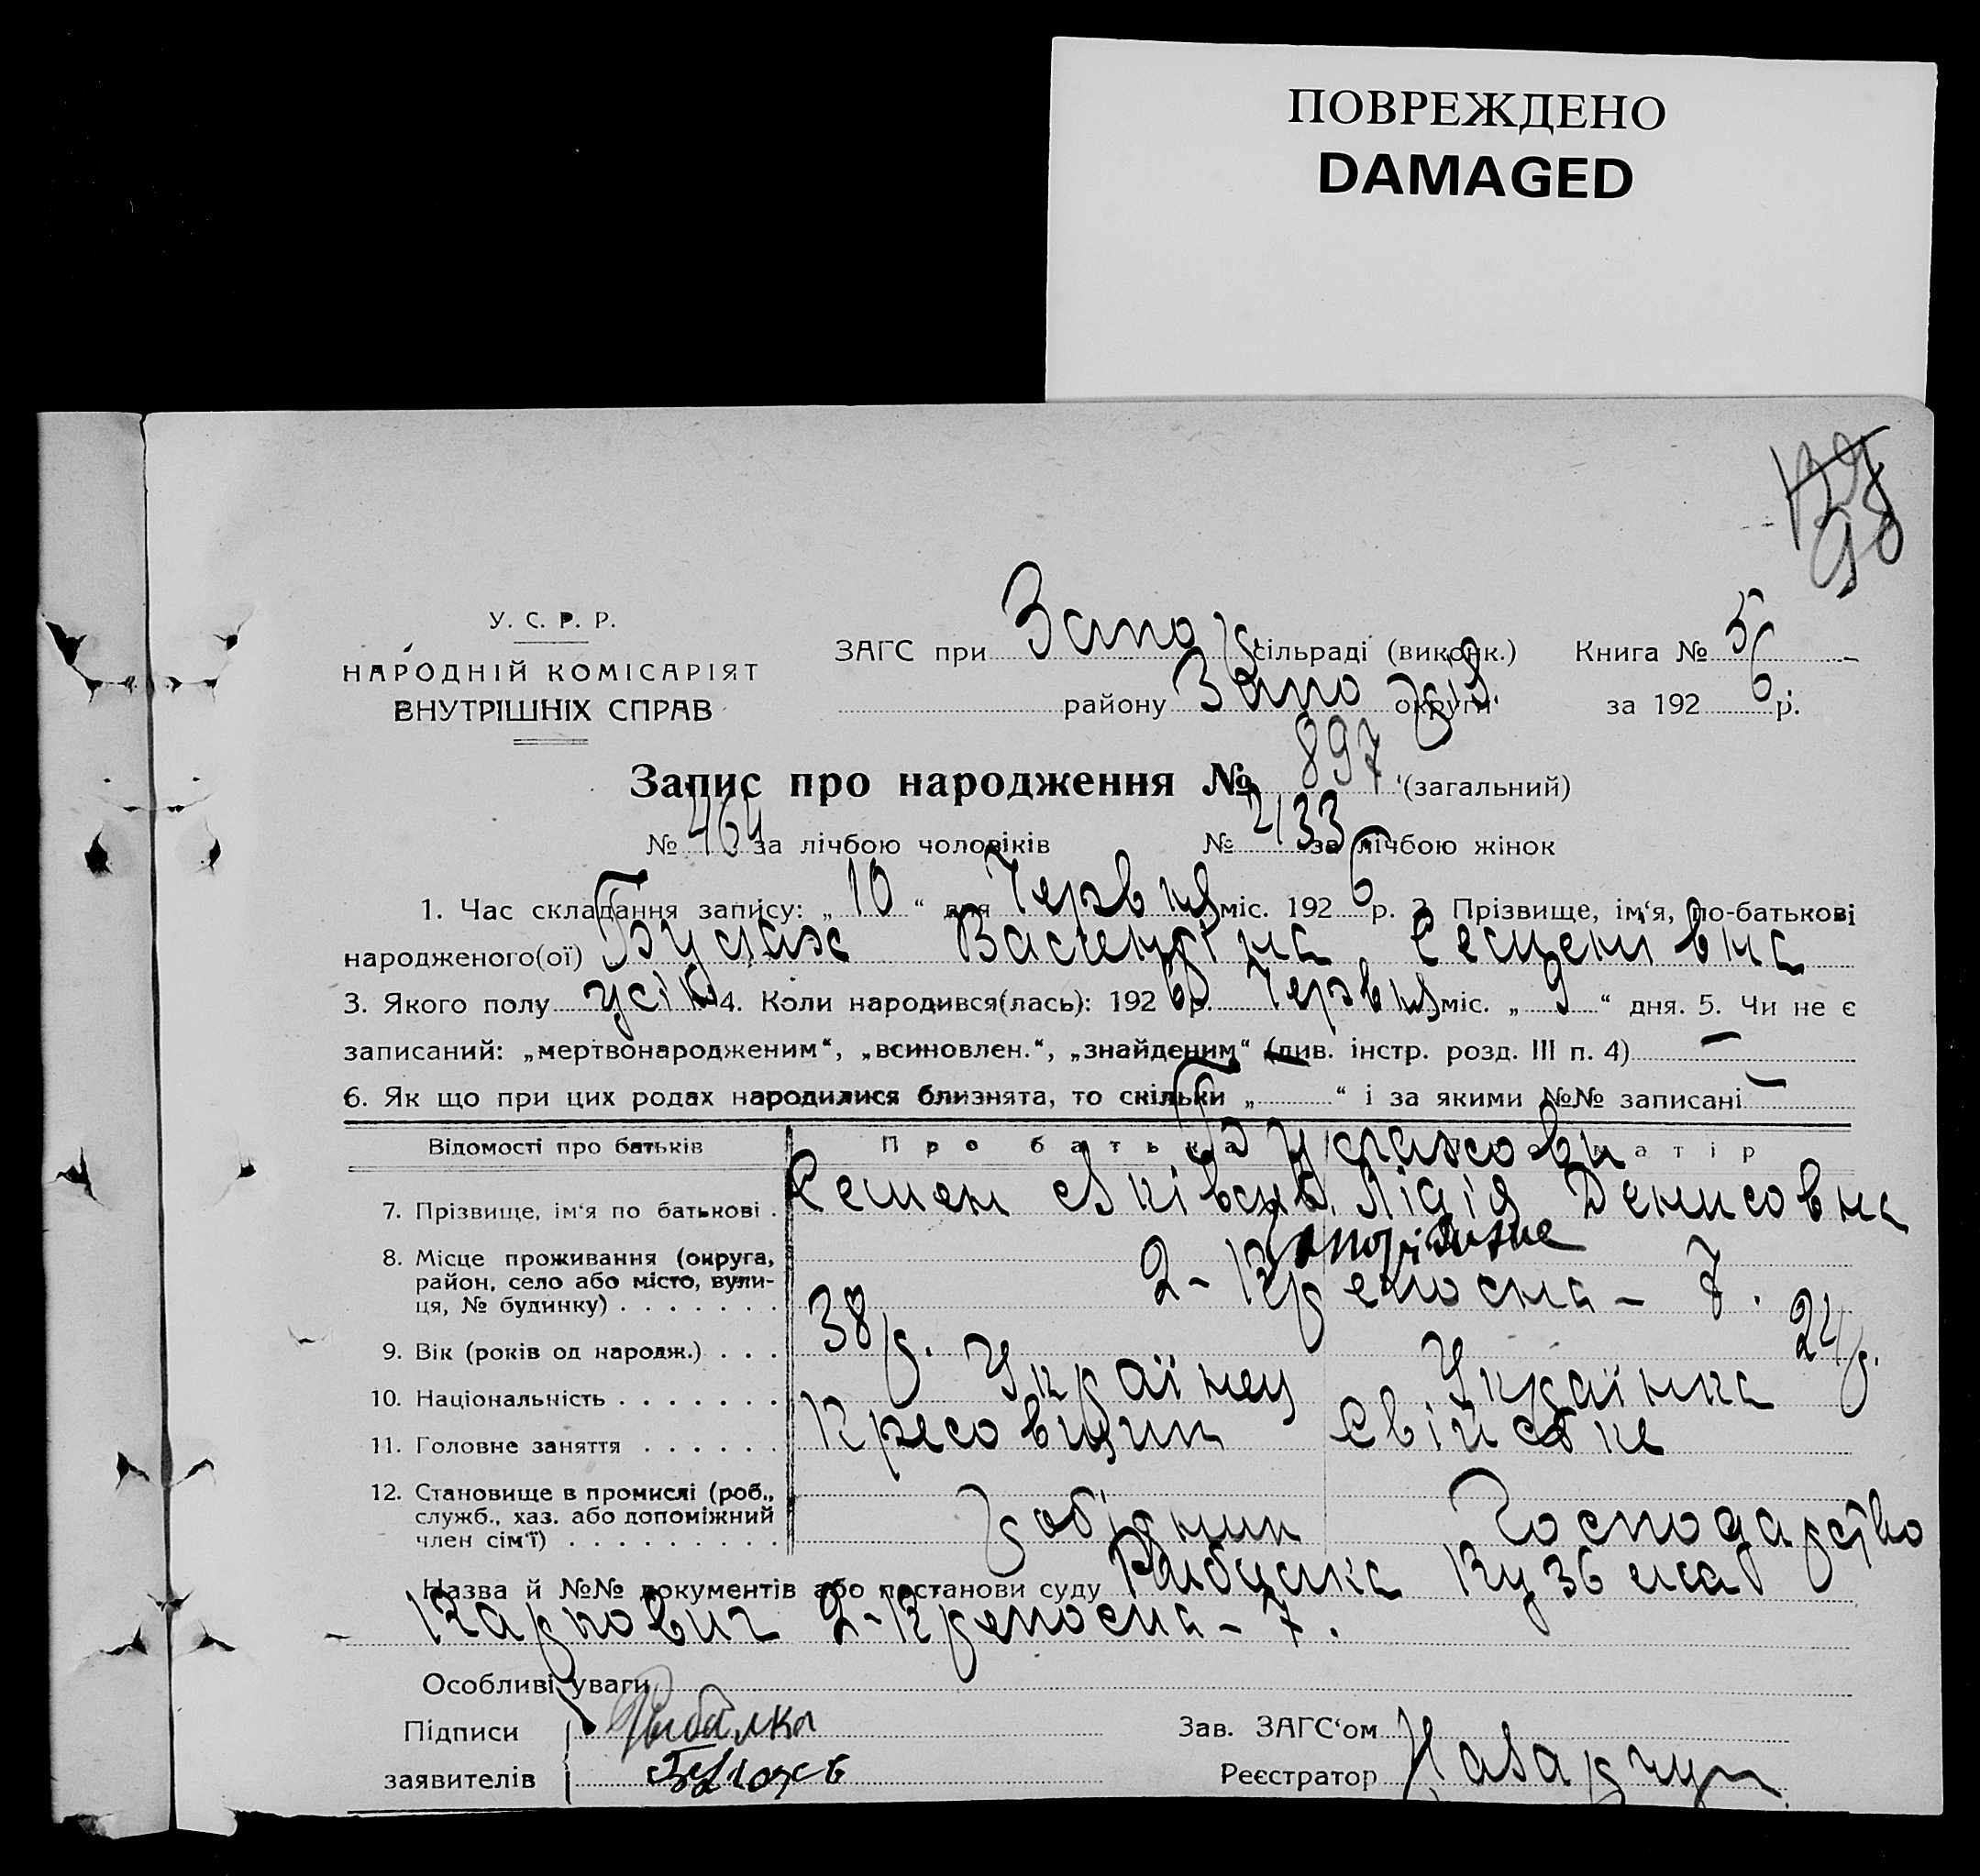 ПОВРЕЖДЕНО
DAMAGED
98
У. С. Р. Р.
НАРОДНІЙ КОМІСАРІЯТ
ВНУТРІШНІХ СПРАВ
ЗАГС при Запор сільраді (виконк.) Книга № 5
району Запор округи за 1926 р.
Запис про народження № 897 (загальний)
№ 464 за лічбою чоловіків № 433 за лічбою жінок
1. Час складання запису: „ 10 “ дня Червня міс. 1926 р. 2. Прізвище, ім‘я, по-батькові
народженого(ої) Булах Валентіна Семенівна
3. Якого полу 4. Коли народився(лась): 1926 р. Червня міс. „ 9 “ дня. 5. Чи не є
записаний: „мертвонародженим“, „всиновлен.“, „знайденим“ (див. інстр. розд. III п. 4) —
6. Як що при цих родах народилися близнята, то скільки „ “ і за якими №№ записані —
Відомості про батьків Про батька матір
7. Прізвище, ім‘я по батькові . Семен Лідія Денисовна
8. Місце проживання (округа, Запоріжжє
район, село або місто, вули- 2- Крепосна - 7.
ця, № будинку) . . . . . . .
9. Вік (років од народж.) . . . 38 р. 24 р.
10. Національність . . . . . . . Українец Українка
11. Головне заняття . . . . . . Свійске
12. Становище в промислі (роб., служб., хаз. або допоміжний
член сім‘ї) . . . . . . . . . робітник Господарство
Назва й №№ документів або постанови суду Рибалка Кузьма
Карпович 2-Крепосна - 7.
Особливі уваги
Підписи Рыбалка Зав. ЗАГС‘ом
заявителів Реєстратор Назарчук